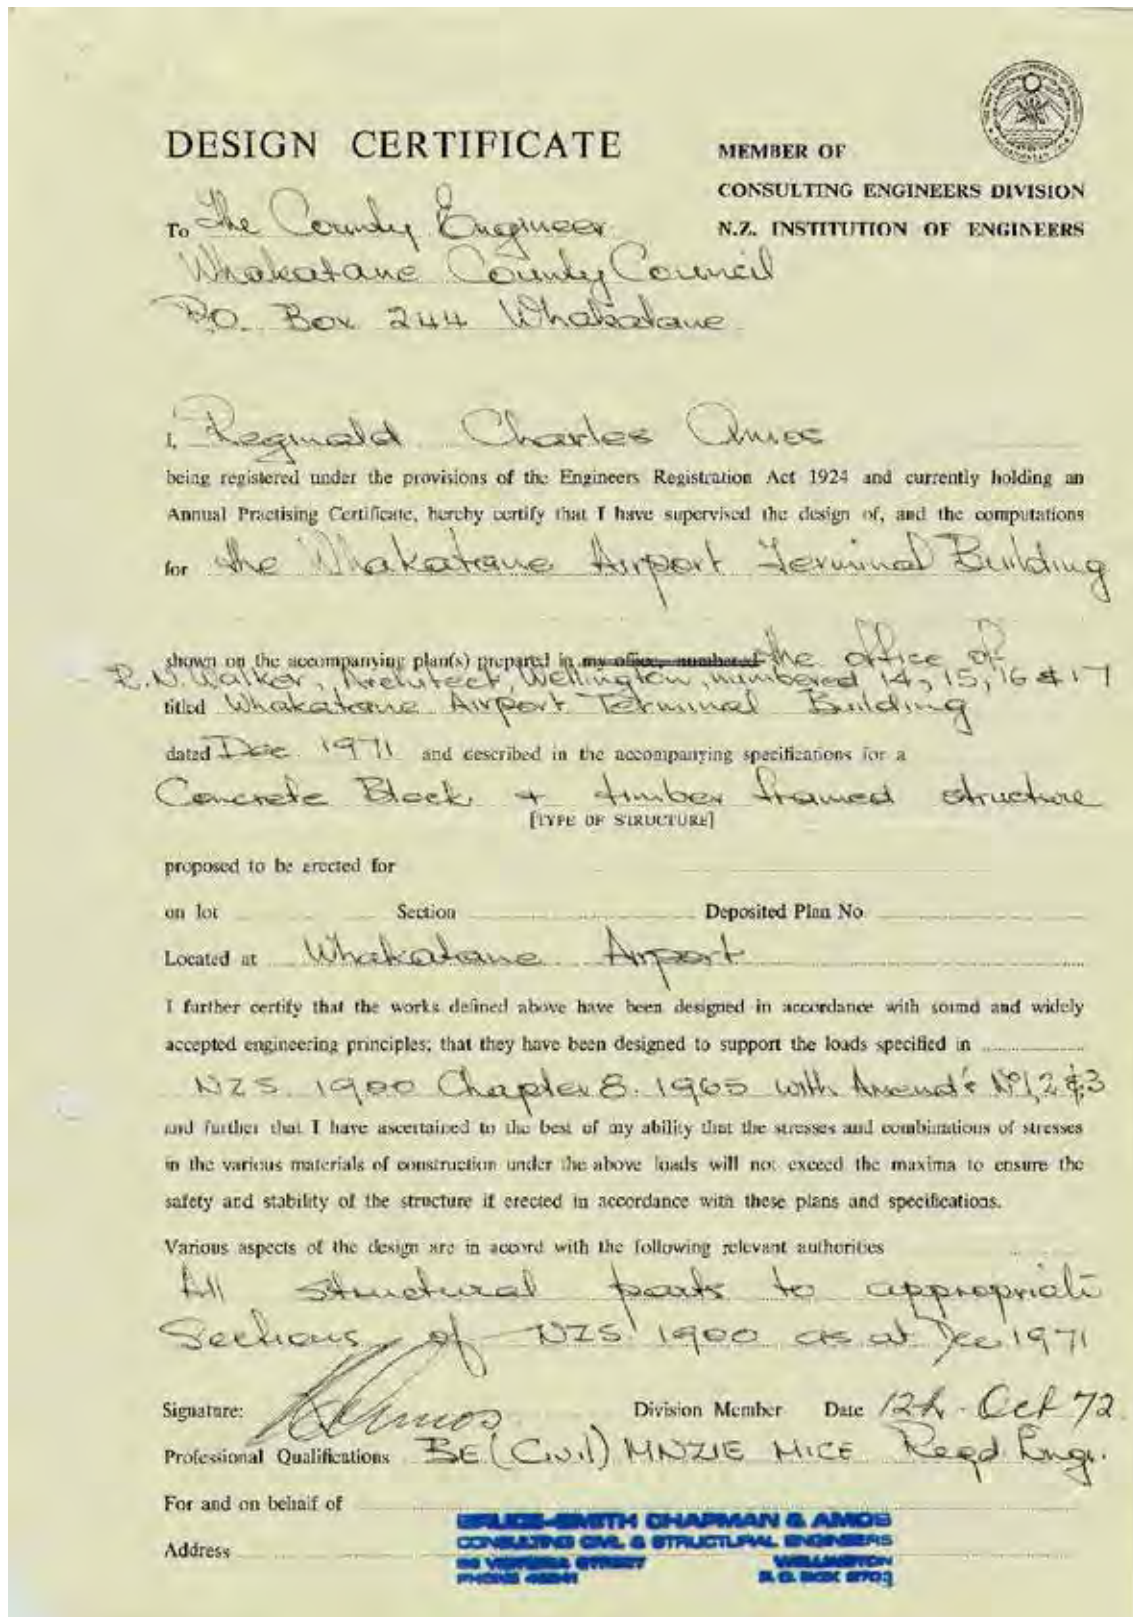 DESIGN CERTIFICATE
MEMBER OF
CONSULTING ENGINEERS DIVISION
N.Z. INSTITUTION OF ENGINEERS
To The County Engineer
Whakatane County Council
P.O. Box 244 Whakatane
I, Reginald Charles Amos
being registered under the provisions of the Engineers Registration Act 1924 and currently holding an
Annual Practising Certificate, hereby certify that I have supervised the design of, and the computations
for the Whakatane Airport Terminal Building
shown on the accompanying plan(s) prepared in my office, numbered the office of
R.N. Walker, Architect, Wellington, numbered 14, 15, 16 & 17
titled Whakatane Airport Terminal Building
dated Dec. 1971 and described in the accompanying specifications for a
Concrete Block + timber framed structure
[TYPE OF STRUCTURE]
proposed to be erected for
on lot Section Deposited Plan No.
Located at Whakatane Airport
I further certify that the works defined above have been designed in accordance with sound and widely
accepted engineering principles; that they have been designed to support the loads specified in
NZS 1900 Chapter 8. 1965 with Amend's No 1, 2 & 3
and further that I have ascertained to the best of my ability that the stresses and combinations of stresses
in the various materials of construction under the above loads will not exceed the maxima to ensure the
safety and stability of the structure if erected in accordance with these plans and specifications.
Various aspects of the design are in accord with the following relevant authorities
All structural parts to appropriate
Sections of NZS 1900 as at Dec 1971
Signature: R Amos Division Member Date 12th Oct 72
Professional Qualifications BE (Civil) MNZIE MICE Regd. Engr.
For and on behalf of
BRUCE-SMITH CHAPMAN & AMOS
CONSULTING CIVIL & STRUCTURAL ENGINEERS
Address VICTORIA STREET WELLINGTON
PHONE P.O. BOX